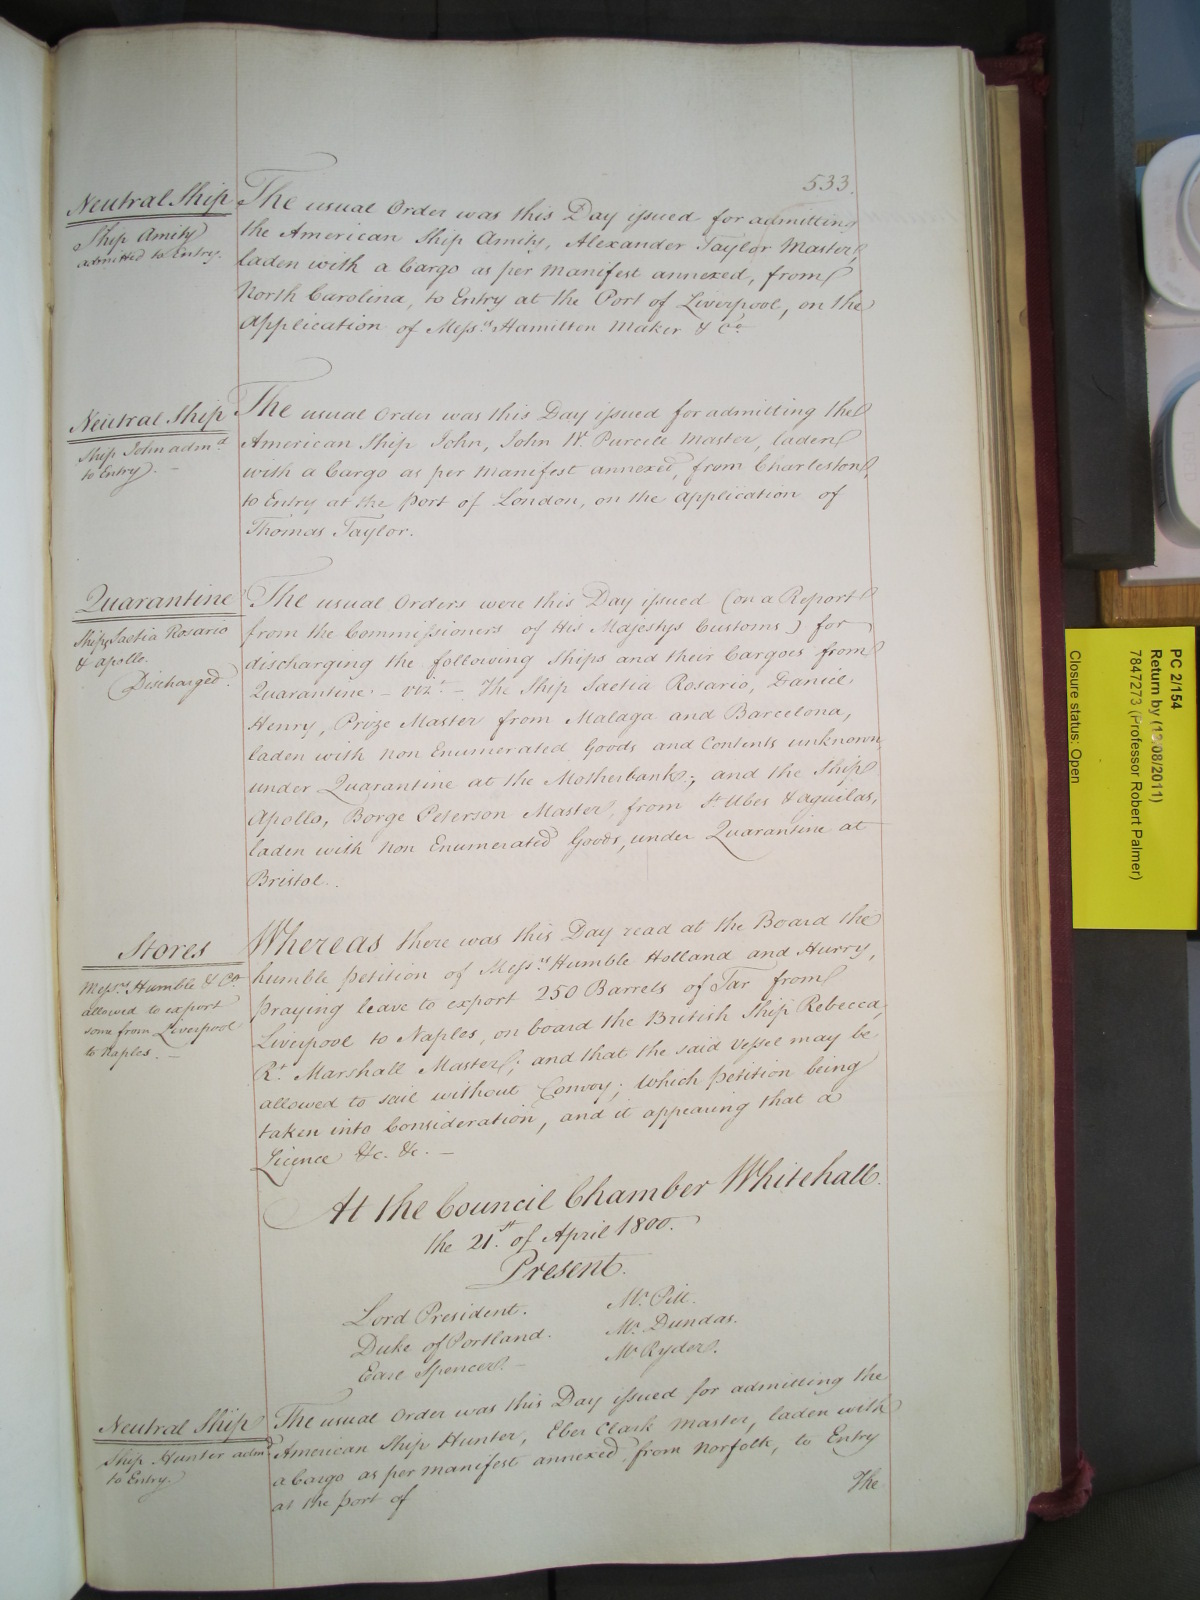 533.
Neutral Ship
Ship Amity
admitted to Entry.
The usual Order was this Day issued for admitting
the American Ship Amity, Alexander Taylor Master,
laden with a Cargo as per Manifest annexed, from
North Carolina, to Entry at the Port of Liverpool, on the
Application of Messrs Hamilton Maker & Co.
Neutral Ship
Ship John admd
to Entry. -
The usual Order was this Day issued for admitting the
American Ship John, John W. Purcell Master, laden
with a Cargo as per Manifest annexed, from Charleston,
to Entry at the Port of London, on the Application of
Thomas Taylor.
Quarantine
Ships Saetia Rosario
& Apollo.
Discharged.
The usual Orders were this Day issued (on a Report
from the Commissioners of His Majestys Customs) for
discharging the following Ships and their Cargoes from
Quarantine - vizt. - The Ship Saetia Rosario, Daniel
Henry, Prize Master from Malaga and Barcelona,
laden with non Enumerated Goods and Contents unknown
under Quarantine at the Motherbank; and the Ship
Apollo, Borge Peterson Master, from St Ubes & Aguilas,
laden with non Enumerated Goods, under Quarantine at
Bristol.
Stores
Messrs Humble & Co.
allowed to export
some from Liverpool
to Naples. -
Whereas there was this Day read at the Board the
humble petition of Messrs Humble Holland and Hurry,
praying leave to export 250 Barrels of Tar from
Liverpool to Naples, on board the British Ship Rebecca,
Rt. Marshall Master; and that the said Vessel may be
allowed to sail without Convoy; which petition being
taken into Consideration, and it appearing that a
Licence &c. &c. -
At the Council Chamber Whitehall
the 21st of April 1800.
Present.
Lord President. Mr. Pitt.
Duke of Portland. Mr. Dundas.
Earl Spencer. - Mr Ryder.
Neutral Ship
Ship Hunter admd
to Entry.
The usual Order was this Day issued for admitting the
American Ship Hunter, Eber Clark Master, laden with
a Cargo as per Manifest annexed, from Norfolk, to Entry
at the Port of
The
PC 2/154
Return by (12/08/2011)
7847273 (Professor Robert Palmer)
Closure status: Open